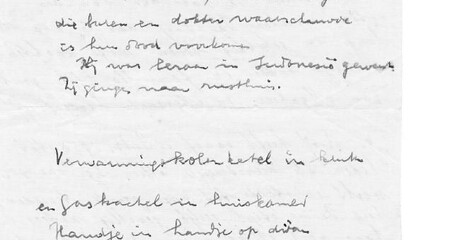 die buren en dokter waarschuwde
is hun dood voorkomen
Hij was leraar in Indonesië geweest
Zij gingen naar rusthuis.
Verwarmingskolenketel in keuken
en gaskachel in huiskamer
Handje in handje op divan